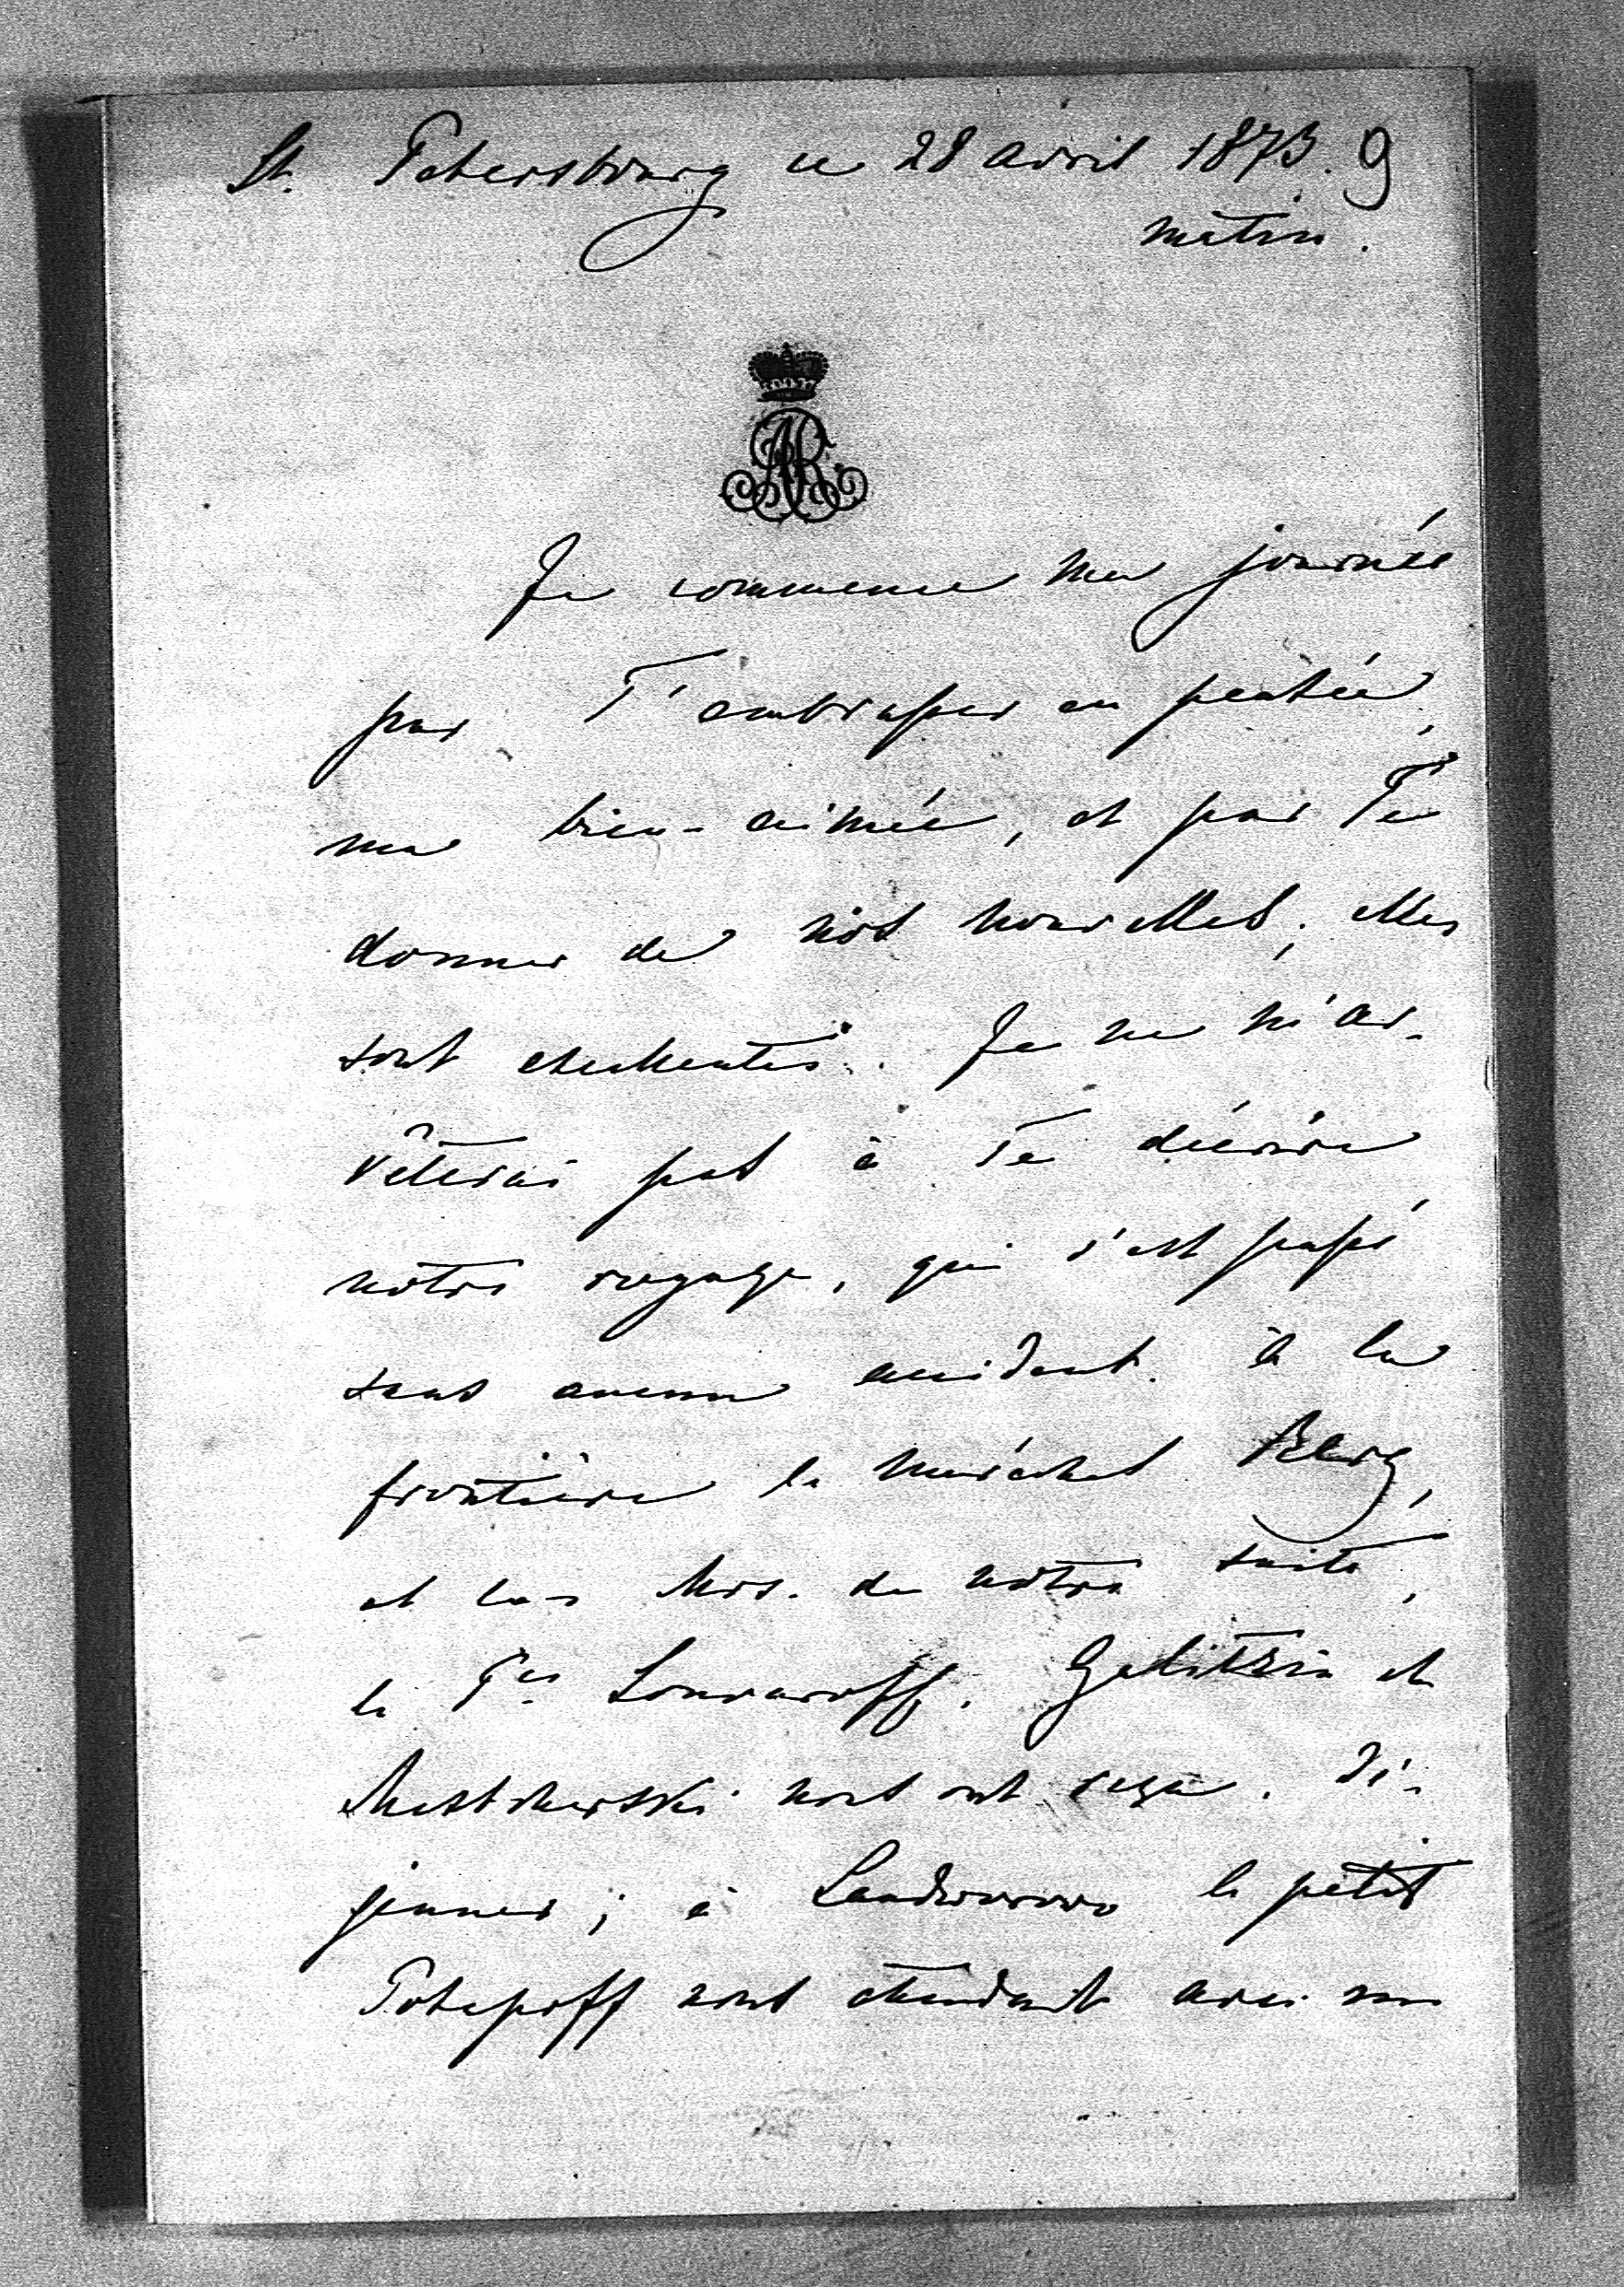 St. Petersbourg ce 28 avril 1873. 9
matin.
AR
Je commence ma journée
par T'embrasser en pensée,
ma bien-aimée, et par Te
donner de nos nouvelles; elles
sont excellentes. Je ne m'ar-
rêterai pas à Te décrire
notre voyage, qui s'est passé
sans aucun accident. à la
frontière le maréchal Berg,
et les Mrs. de notre suite,
le Souvaroff, Galitzin et
Mestcherski nous ont reçu. Dé-
jeuner; à Landwarowo le petit
Potapoff nous attendait avec un